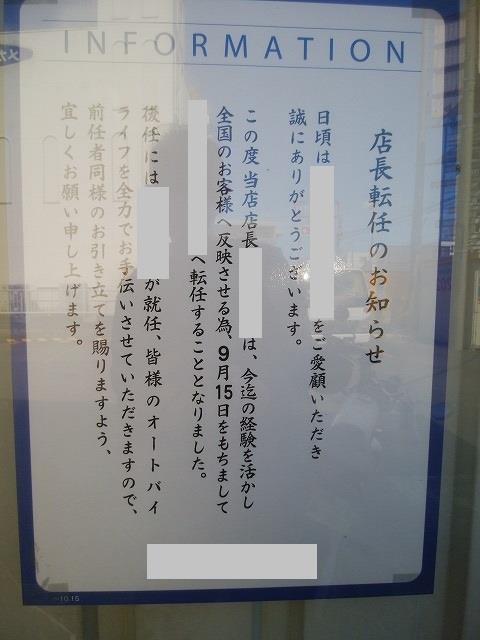 INFORMATION
店長転任のお知らせ
日頃は をご愛顧いただき
誠にありがとうございます。
この度当店店長 は、今迄の経験を活かし
全国のお客様へ反映させる為、9月15日をもちまして
へ転任することとなりました。
後任には が就任、皆様のオートバイ
ライフを全力でお手伝いさせていただきますので、
前任者同様のお引き立てを賜りますよう、
宜しくお願い申し上げます。
10.15